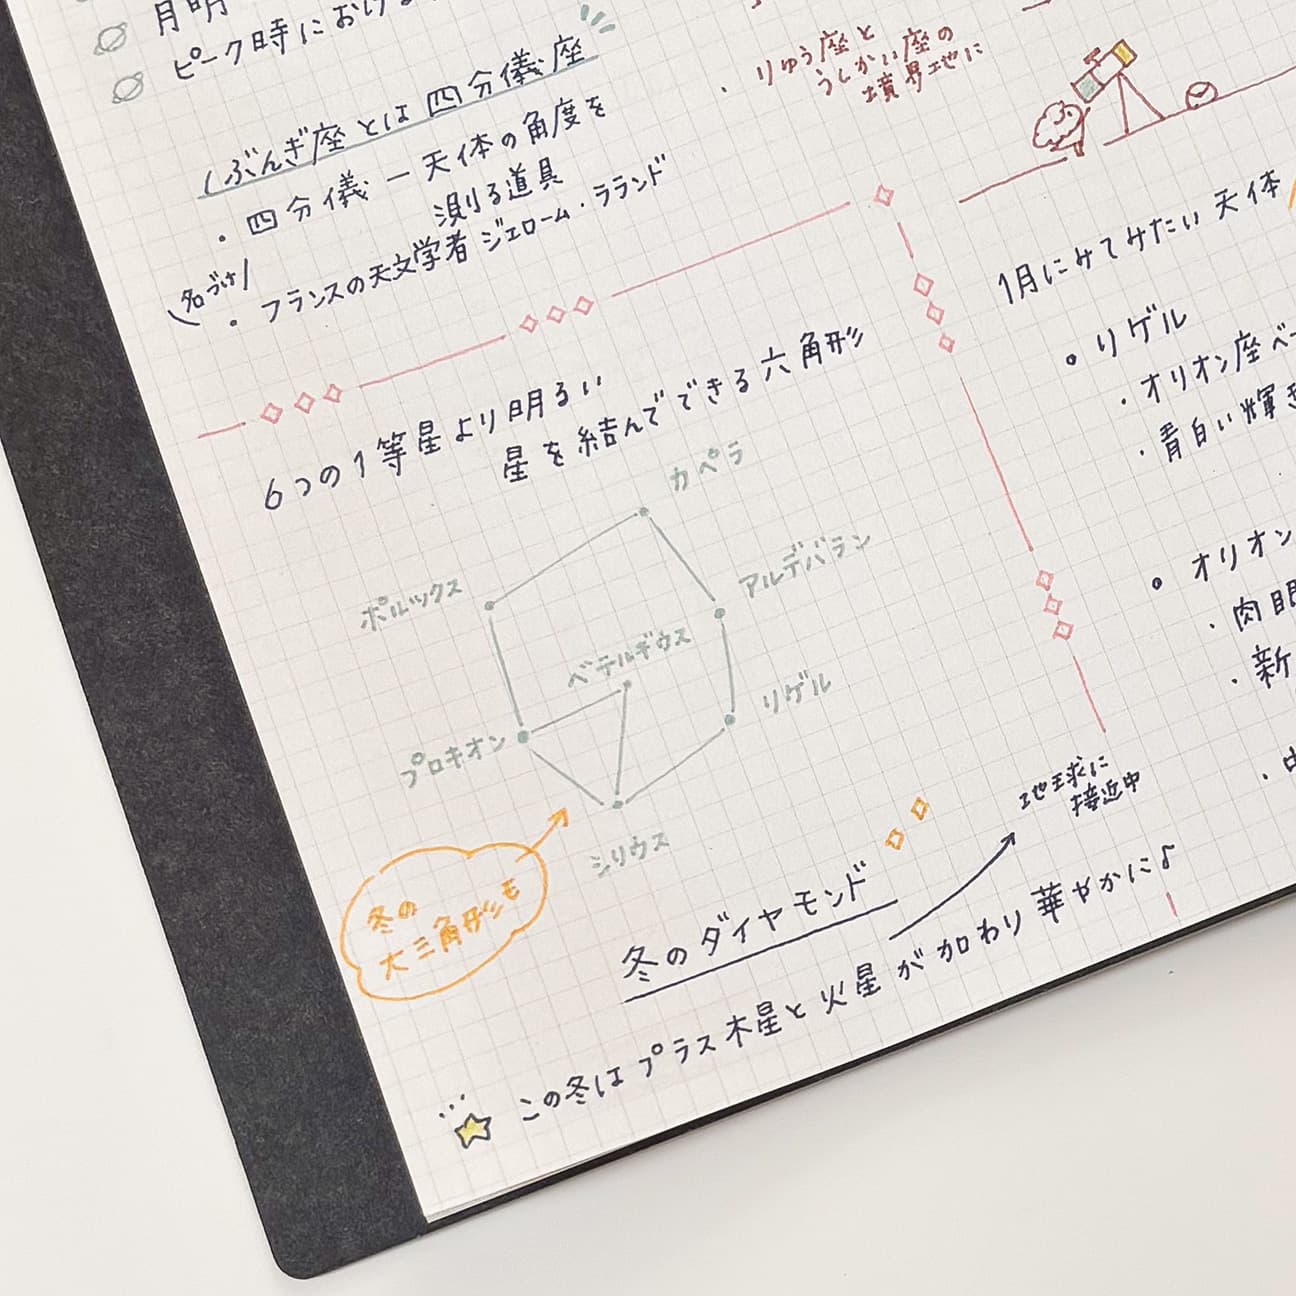 月明
ピーク時におけ
しぶんぎ座とは四分儀座
・四分儀 ー 天体の角度を
測る道具
名づけ
・フランスの天文学者 ジェローム・ラランド
・りゅう座と
うしかい座の
境界地に
6つの1等星より明るい
星を結んでできる六角形
カペラ
アルデバラン
ポルックス
ベテルギウス
リゲル
プロキオン
シリウス
冬の
大三角形も
冬のダイヤモンド
地球に
接近中
この冬はプラス木星と火星が加わり華やかに♪
1月にみてみたい天体
リゲル
・オリオン座ベ
・青白い輝き
オリオン
・肉眼
・新